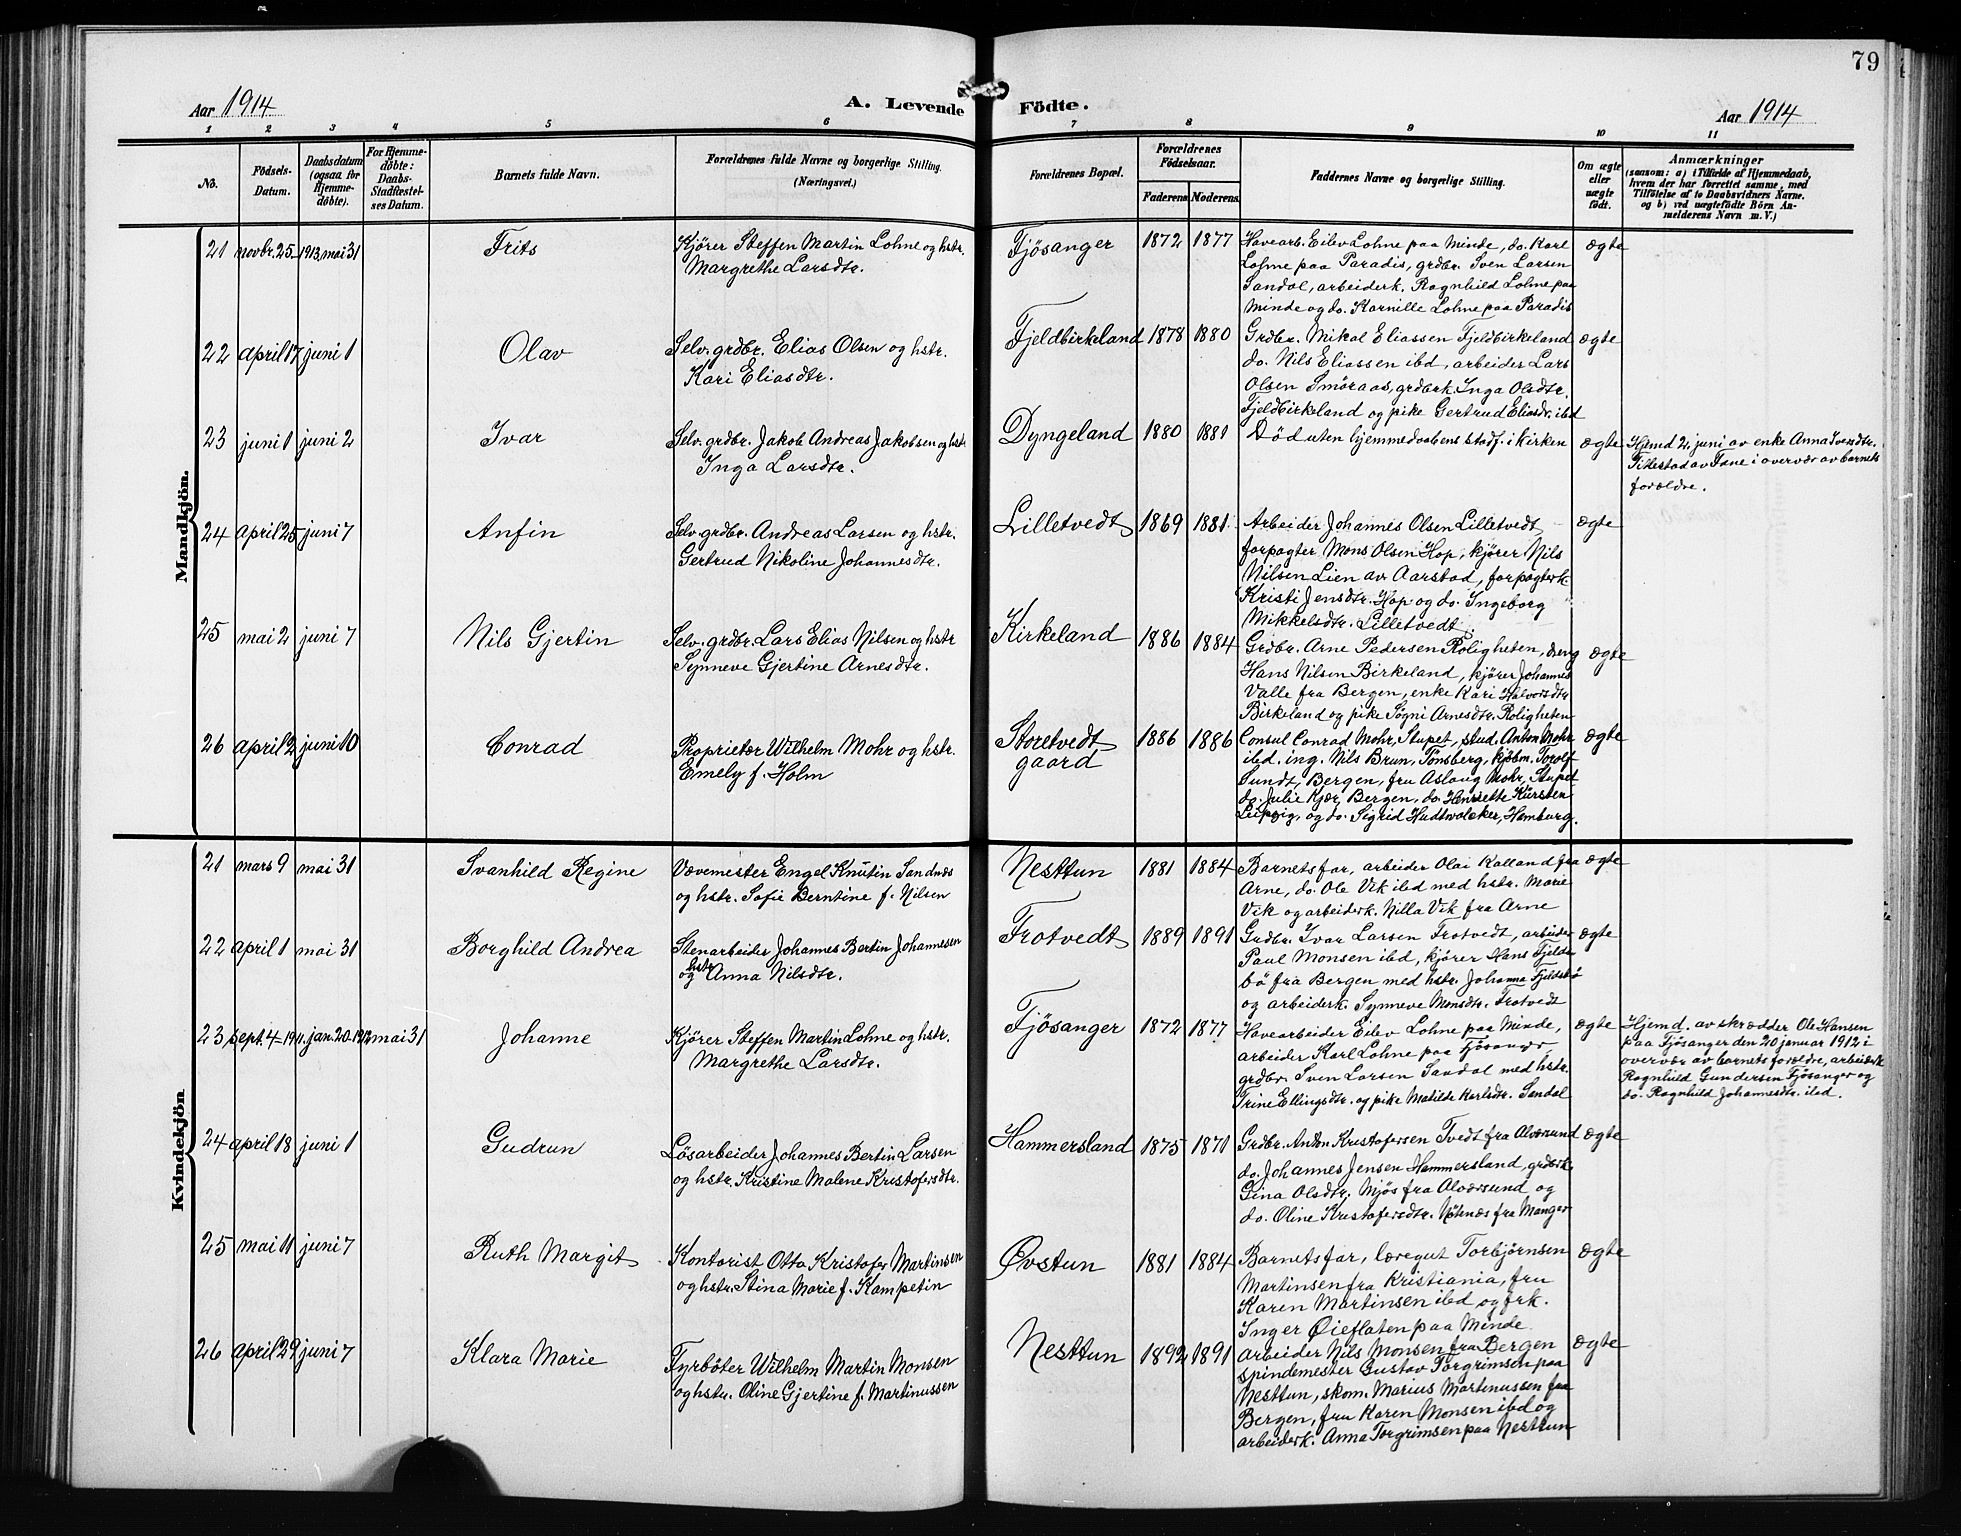 79
Aar 1914
A. Levende Födte.
Aar 1914
1 2 3 4 5 6 7 8 9 10 11
No.
Födsels-
Datum.
Daabsdatum
(ogsaa for
Hjemme-
döbte).
For Hjemme-
döbte:
Daabs-
Stadfæstel-
ses Datum.
Barnets fulde Navn.
Forældrenes fulde Navne og borgerlige Stilling.
(Næringsvei.)
Forældrenes Bopæl.
Forældrenes
Födselsaar.
Faderens Moderens
Faddernes Navne og borgerlige Stilling.
Om ægte
eller
uægte
født.
Anmærkninger
(saasom: a) i Tilfælde af Hjemmedaab,
hvem der har forrettet samme, med
Tilföielse af to Daabsvidners Navne.
og b) ved uægtefödte Börn An-
melderens Navn m. V.)
Mandkjön.
21 novbr. 25 1913, mai 31 Frits
Kjörer Steffen Martin Lohne og hstr.
Margrethe Larsdtr.
Fjösanger 1872 1877
Havearb. Eilev Lohne paa Minde, do. Karl
Lohne paa Paradis, grdbr. Sven Larsen
Sandal, arbeiderk. Ragnhild Lohne paa
Minde og do. Kornille Lohne paa Paradis
ægte
22 april 17 juni 1 Olav
Selv. grdbr. Elias Olsen og hstr.
Kari Eliasdtr.
Fjeldbirkeland 1878 1880
Grdbr. Mikal Eliassen Fjeldbirkeland
do. Nils Eliassen ibd, arbeider Lars
Olsen Smöraas, grdbrk. Inga Olsdtr.
Fjeldbirkeland og pike Gertrud Eliasdr. ibd
ægte
23 juni 1 juni 2 Ivar
Selv. grdbr. Jakob Andreas Jakobsen og hstr
Inga Larsdtr.
Dyngeland 1880 1881
Död uten hjemmedaabens stadf. i kirken
ægte
Hjemd 2. juni av enke Anna Iversdtr.
Titlestad av Fane i overvær av barnets
forældre.
24 april 25 juni 7 Anfin
Selv. grdbr. Andreas Larsen og hstr.
Gertrud Nikoline Johannesdtr.
Lilletvedt 1869 1881
Arbeider Johannes Olsen Lilletvedt
forpagter Mons Olsen Hop, kjörer Nils
Nilsen Lien av Aarstad, forpagterk.
Kristi Jensdtr. Hop og do. Ingeborg
Mikkelsdtr. Lilletvedt
ægte
25 mai 2 juni 7 Nils Gjertin
Selv. grdbr. Lars Elias Nilsen og hstr
Synneve Gjertine Arnesdtr.
Kirkeland 1886 1884
Grdbr. Arne Pedersen Roligheten, dreng
Hans Nilsen Birkeland, kjörer Johannes
Valle fra Bergen, enke Kari Halvorsdtr
Birkeland og pike Sögni Arnesdtr. Roligheten
ægte
26 april 2 juni 10 Conrad
Proprietær Wilhelm Mohr og hstr.
Emely f. Holm
Storetvedt
gaard
1886 1886
Consul Conrad Mohr, Stupet, stud. Anton Mohr
ibd. ing. Nils Brun, Tönsberg, kjöbm. Torolf
Sundt, Bergen, fru Aslaug Mohr, Stupet
do. Julie Kjær Bergen, do. Henriette Kürsten
Leipzig, og do. Sigrid Hudtwalcker, Hamburg.
ægte
Kvindekjön
21 mars 9 mai 31 Svanhild Regine
Vævemester Engel Knutin Sandnæs
og hstr. Sofie Berntine f. Nilsen
Nesttun 1881 1884
Barnets far, arbeider Olai Kalland fra
Arne, do. Ole Vik ibd med hstr. Marie
Vik og arbeiderk. Nilla Vik fra Arne
ægte
22 april 1 mai 31 Borghild Andrea
Stenarbeider Johannes Bertin Johannesen
og hstr Anna Nilsdtr.
Trotvedt 1889 1891
Grdbr. Ivar Larsen Trotvedt, arbeider
Paul Monsen ibd, kjörer Hans Fjelds-
bö fra Bergen med hstr. Johanna Fjeldsbö
og arbeiderk. Synneve Monsdtr. Trotvedt
ægte
23 sept. 4-1911. jan. 20-1912 mai 31 Johanne
Kjörer Steffen Martin Lohne og hstr.
Margrethe Larsdtr.
Fjösanger 1872 1877
Havearbeider Eilev Lohne paa Minde,
arbeider Karl Lohne paa Fjösanger
grdbr. Sven Larsen Sandal med hstr.
Trine Ellingsdtr. og pike Matilde Karlsdtr. Sandal
ægte
Hjemd. av skrædder Ole Hansen
paa Fjösanger den 20 januar 1912 i
overvær av barnets forældre, arbeiderk
Ragnhild Gundersen Fjösanger og
do. Ragnhild Johannesdtr. ibd.
24 april 18 juni 1 Gudrun
Lösarbeider Johannes Bertin Larsen
og hstr. Kristine Malene Kristofersdtr.
Hammersland 1875 1871
Grdbr. Anton Kristofersen Tvedt fra Alversund
do. Johannes Jensen Hammersland, grdbrk.
Gina Olsdtr. Mjös fra Alversund og
do. Oline Kristofersdtr. Nötnæs fra Manger
ægte
25 mai 11 juni 7 Ruth Margit
Kontorist Otto Kristofer Martinsen
og hstr. Stina Marie f. Kampetin
Øvstun 1881 1884
Barnets far, læregut Torbjörnsen
Martinsen fra Kristiania, fru
Karen Martinsen ibd og frk.
Inger Øieflaten paa Minde
ægte
26 april 29 juni 7 Klara Marie
Fyrböter Wilhelm Martin Monsen
og hstr. Oline Gjertine f. Martinussen
Nesttun 1892 1891
arbeider Nils Monsen fra Bergen
spindemester Gustav Torgrimsen paa
Nesttun, skom. Marius Martinussen fra
Bergen, fru Karen Monsen ibd og
arbeiderk. Anna Torgrimsen paa Nesttun
ægte